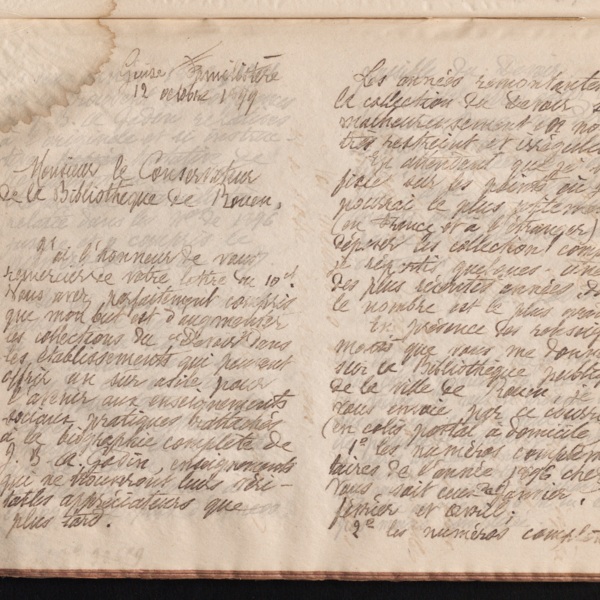 Guise Familistère
12 octobre 1899
Monsieur le Conservateur
de la Bibliothèque de Rouen,
J'ai l'honneur de vous
remercier de votre lettre du 10 ct
Vous avez parfaitement compris
que mon but est d'augmenter
les collections du "Devoir" dans
les établissements qui peuvent
offrir un sur asile pour
l'avenir aux enseignements
sociaux pratiques rattachés
à la biographie complète de
J. B. A. Godin, enseignements
qui ne trouveront leurs véri-
tables appréciateurs que
plus tard.
Les années remontantes
la collection du Devoir
malheureusement en no
très restreint et irrégulie
En attendant que je
fixée sur les points où
pourrai le plus
(en France et à l'étranger)
déposer les collections comp
je répartis quelques-unes
des plus récentes années do
le nombre est le plus
En présence des renseig
ments que vous me donn
sur la Bibliothèque publiq
de la ville de Rouen, je
vous envoie par ce courri
(en colis postal à domicile
1° les numéros complém
taires de l'année 1896 chez
vous, soit ceux de Janvier
février et avril;
2° les numéros complém